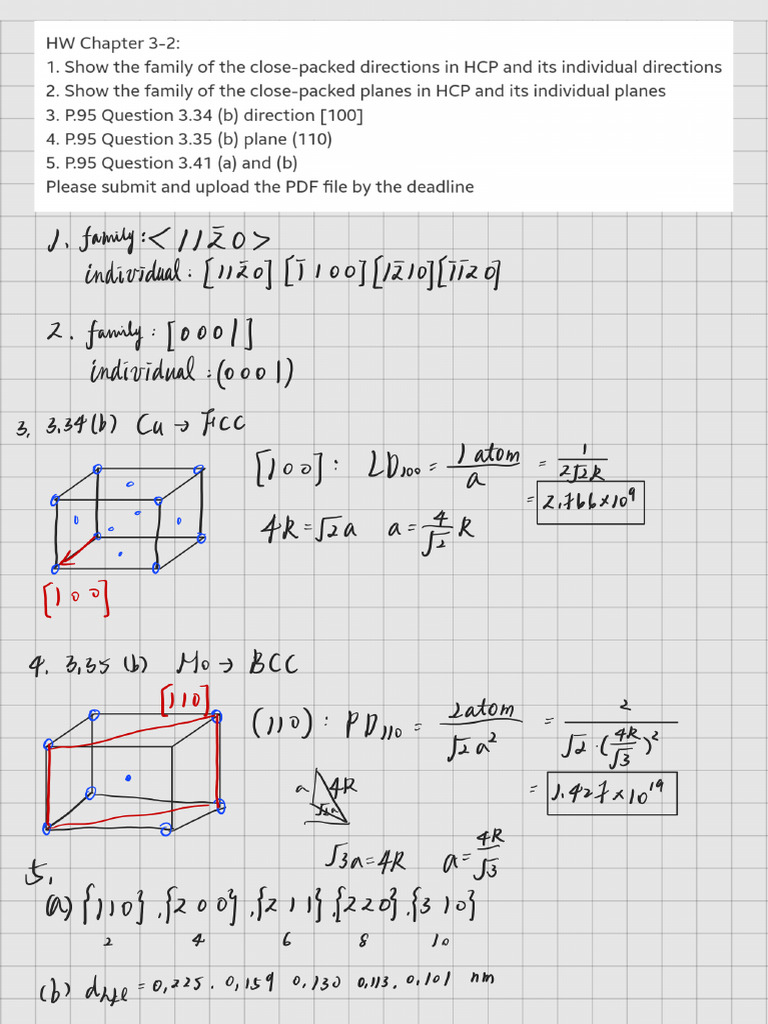 HW Chapter 3-2:
1. Show the family of the close-packed directions in HCP and its individual directions
2. Show the family of the close-packed planes in HCP and its individual planes
3. P.95 Question 3.34 (b) direction [100]
4. P.95 Question 3.35 (b) plane (110)
5. P.95 Question 3.41 (a) and (b)
Please submit and upload the PDF file by the deadline
1. family: <112̄0>
individual: [112̄0] [1̄100] [12̄10] [1̄1̄20]
2. family: [0001]
individual: (0001)
3. 3.34(b) Cu → FCC
[100]: LD₁₀₀ = 1 atom / a = 1 / 2√2R
= 2.766×10⁹
4R=√2a a = 4/√2 R
[100]
4. 3.35 (b) Mo → BCC
[110]
(110): PD₁₁₀ = 2 atom / √2a² = 2 / √2·(4R/√3)²
= 1.427×10¹⁹
a 4R
√2a
√3a=4R a = 4R/√3
5.
(a) {110}, {200}, {211}, {220}, {310}
2 4 6 8 10
(b) dhkl = 0.225. 0.159 0.130 0.113. 0.101 nm